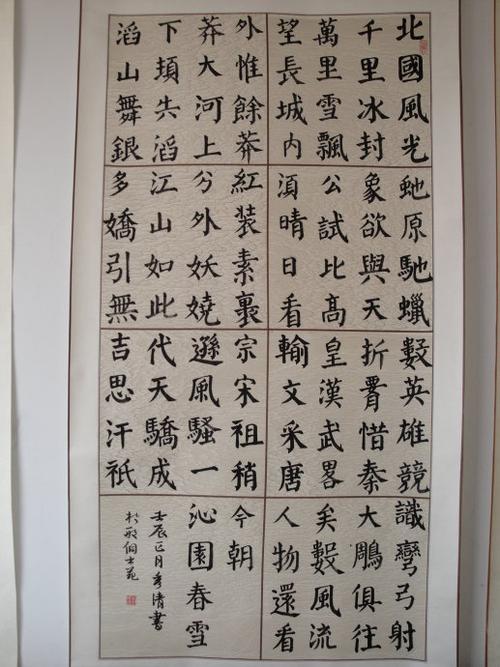 北國風光
千里冰封
萬里雪飄
望長城内
外惟餘莽
莽大河上
下頓失滔
滔山舞銀
虵原馳蠟
象欲與天
公試比高
湏晴日看
紅装素裹
分外妖嬈
江山如此
多嬌引無
數英雄競
折胥惜秦
皇漢武畧
輸文采唐
宗宋祖稍
遜風騷一
代天驕成
吉思汗衹
識彎弓射
大鵰俱往
矣數風流
人物還看
今朝
沁園春雪
壬辰正月秀清書